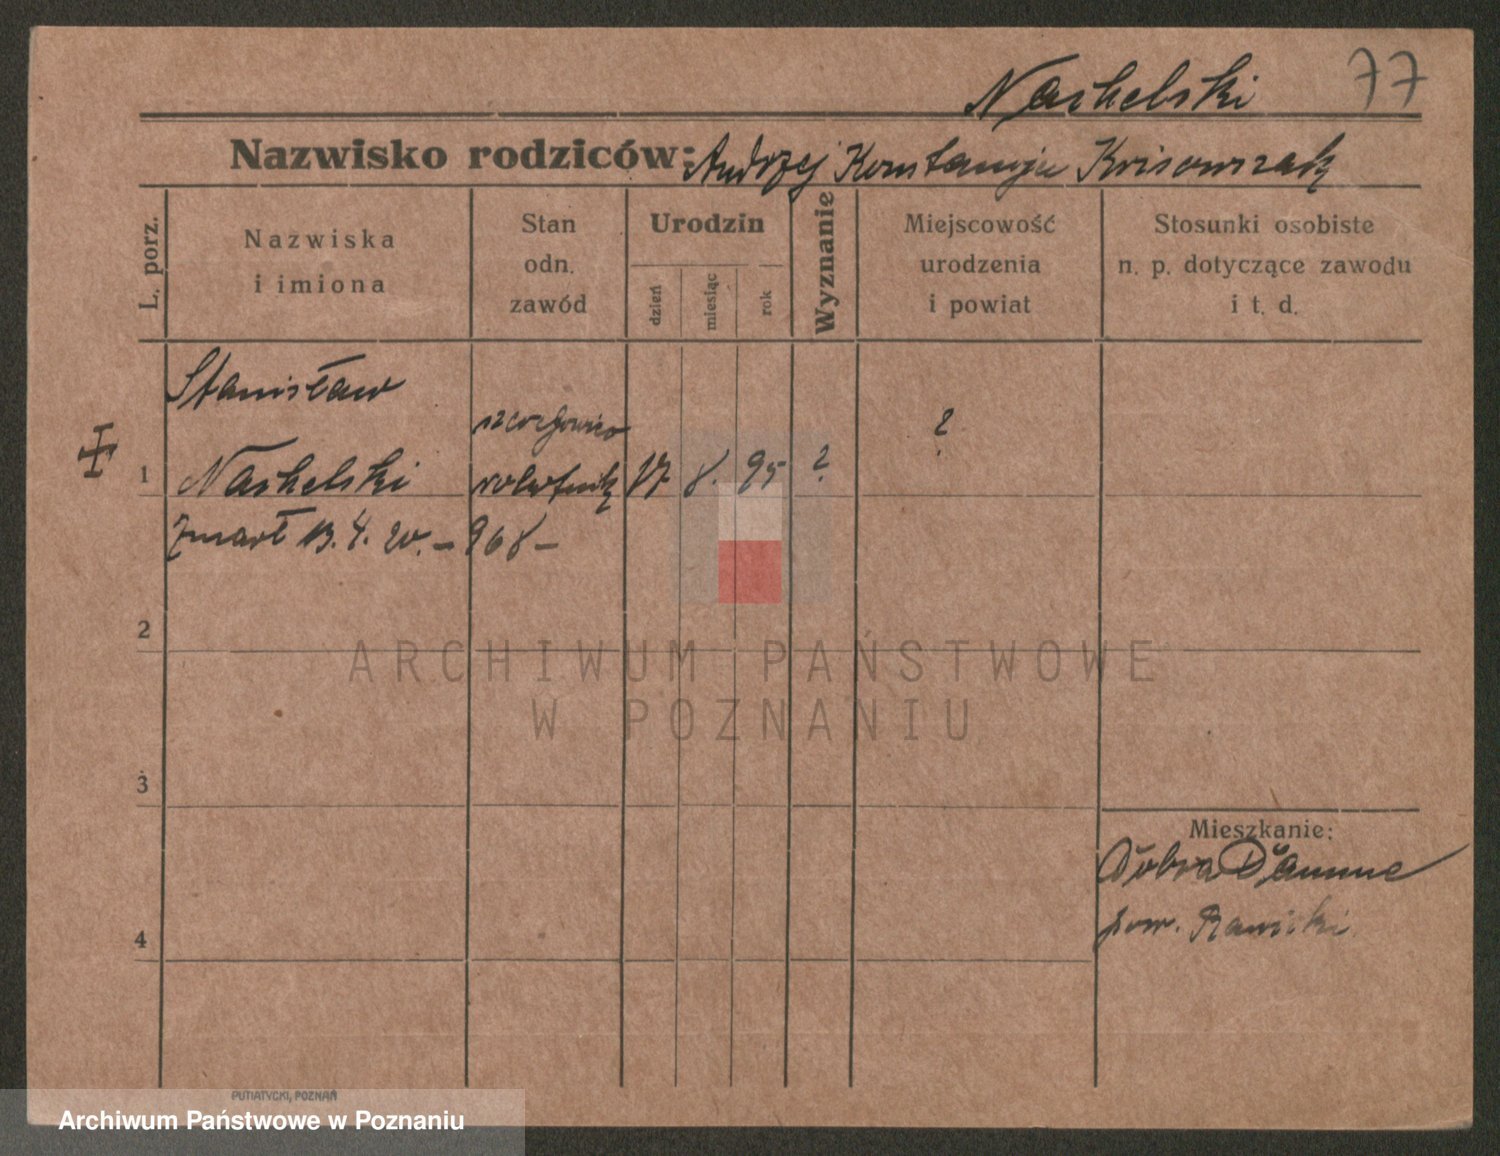 Naskelski 77
Nazwisko rodziców: Andrzej Konstancja
L. porz.
Nazwiska
i imiona
Stan
odn.
zawód
Urodzin
dzień
miesiąc
rok
Wyznanie
Miejscowość
urodzenia
i powiat
Stosunki osobiste
n. p. dotyczące zawodu
i t. d.
Stanisław
1 Naskelski robotnik 17 8. 95 ? ?
Zmarł 13. 4. 20. – 968 –
2
3
4
Mieszkanie:
Dobra
pow. Rawicki
ARCHIWUM PAŃSTWOWE
W POZNANIU
PUTIATYCKI, POZNAŃ
Archiwum Państwowe w Poznaniu